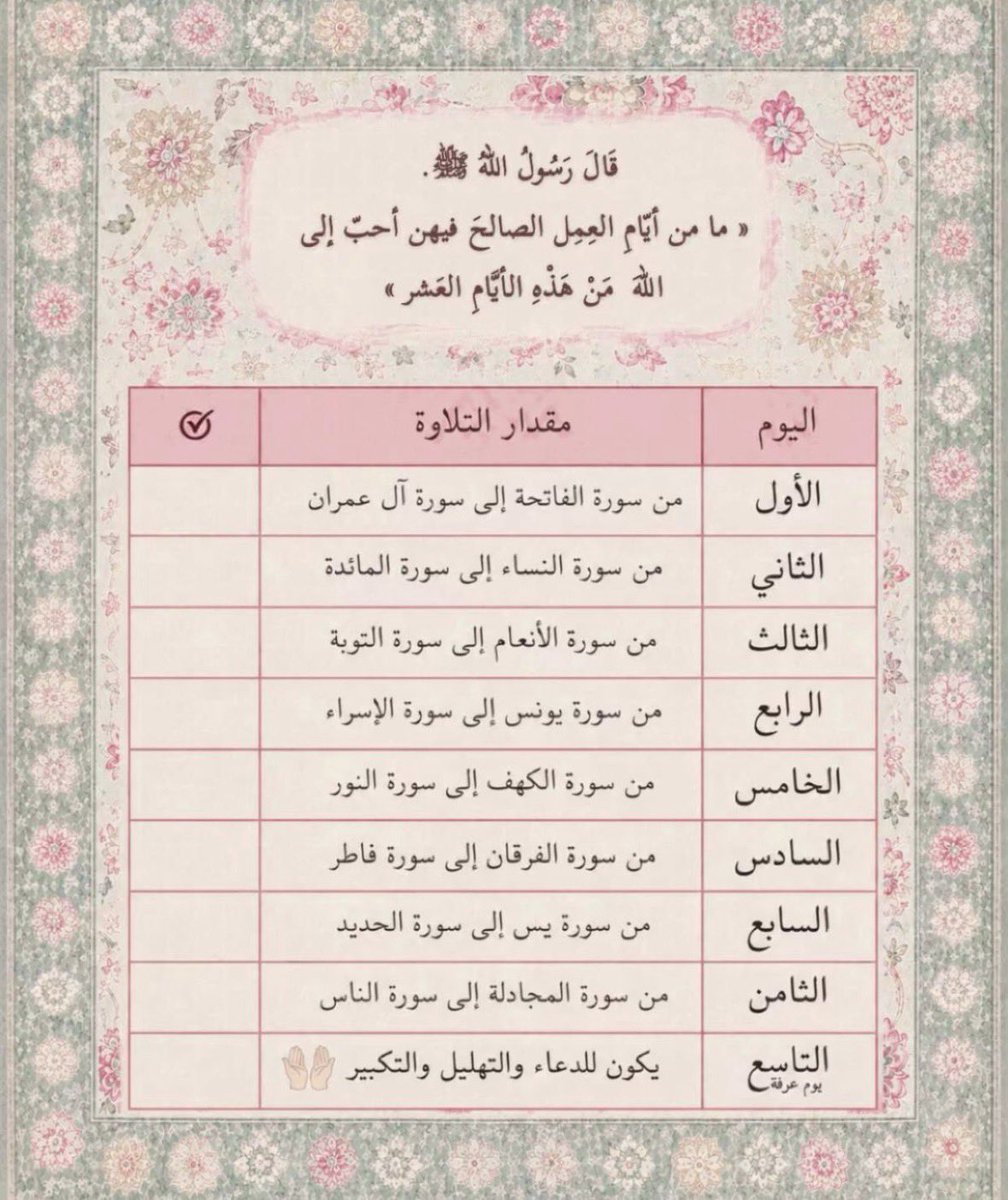 قَالَ رَسُولُ اللهُ ﷺ.
« ما من أيّامِ العِمِل الصالحَ فيهن أحبّ إلى
اللهَ مَنْ هَذْهِ الأيَّامِ العَشر »
اليوم مقدار التلاوة
الأول من سورة الفاتحة إلى سورة آل عمران
الثاني من سورة النساء إلى سورة المائدة
الثالث من سورة الأنعام إلى سورة التوبة
الرابع من سورة يونس إلى سورة الإسراء
الخامس من سورة الكهف إلى سورة النور
السادس من سورة الفرقان إلى سورة فاطر
السابع من سورة يس إلى سورة الحديد
الثامن من سورة المجادلة إلى سورة الناس
التاسع يكون للدعاء والتهليل والتكبير
يوم عرفة